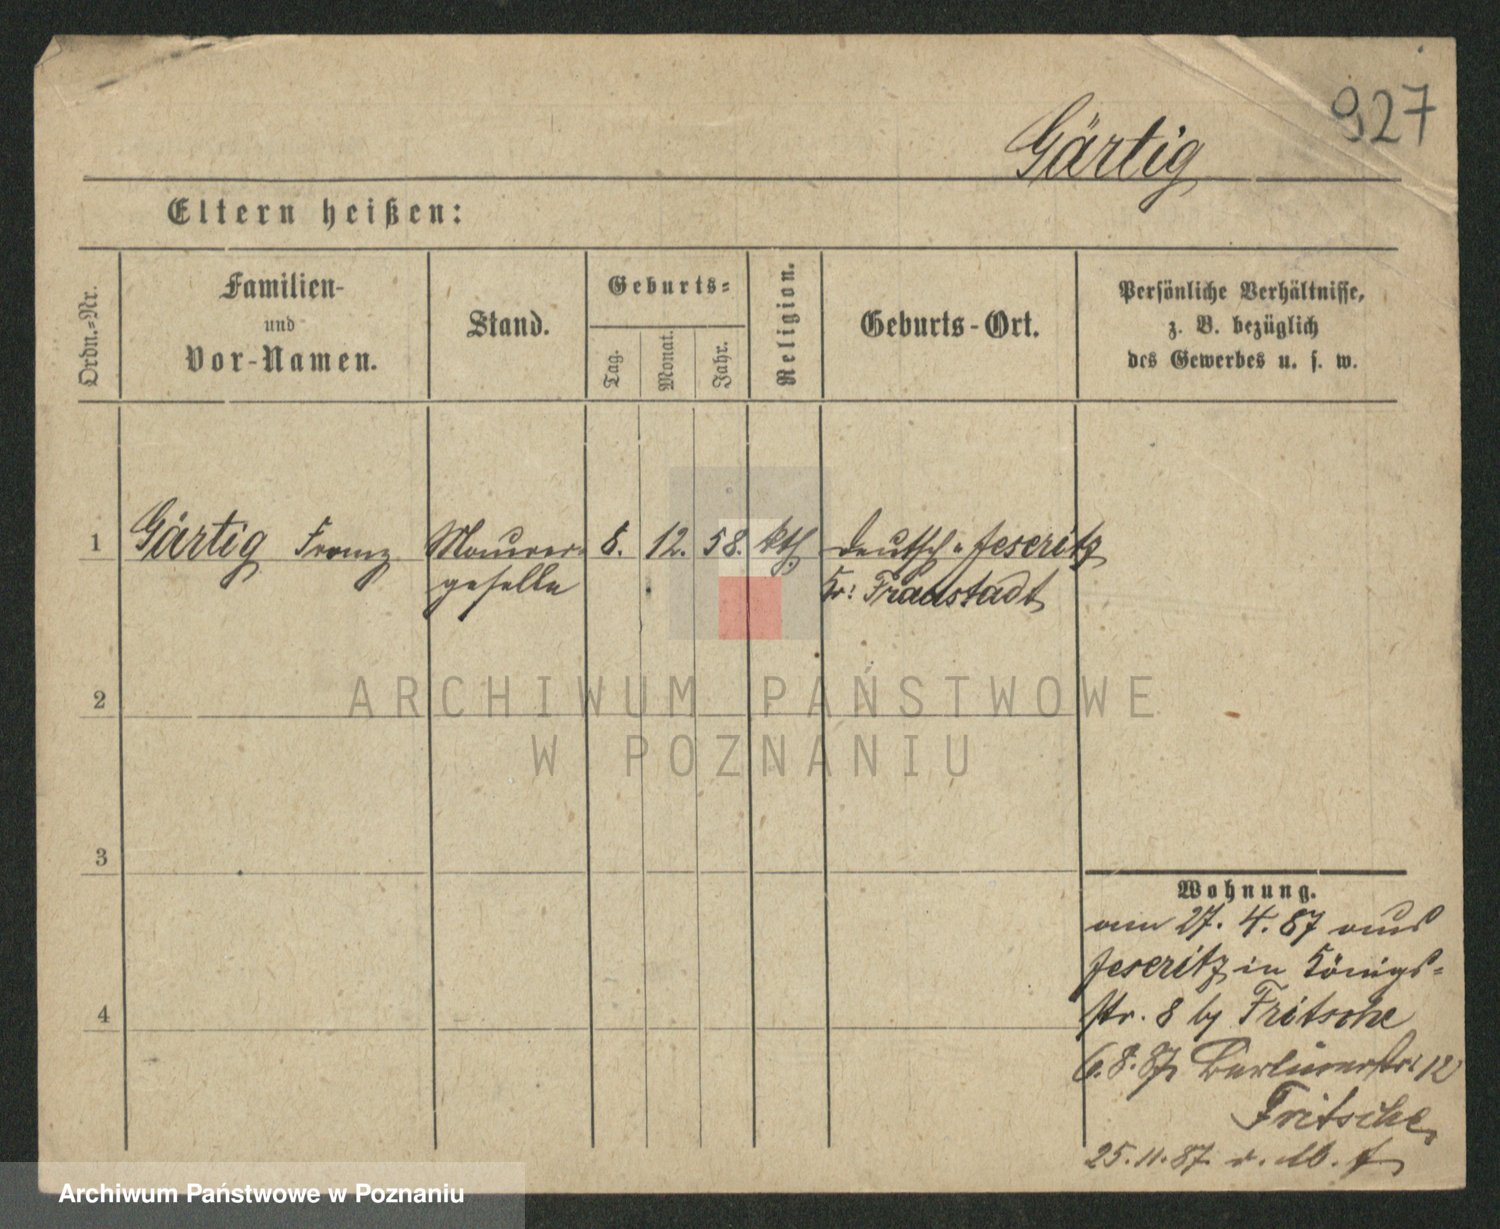 927
Gärtig
Eltern heißen:
Ordn.=Nr.
Familien-
und
Vor-Namen.
Stand.
Geburts=
Tag.
Monat.
Jahr.
Religion.
Geburts-Ort.
Persönliche Verhältnisse,
z. B. bezüglich
des Gewerbes u. s. w.
1 Gärtig Franz Maurer- 8. 12. 58. kth. Deutsch-Jeseritz
geselle Kr: Fraustadt
ARCHIWUM PAŃSTWOWE
2
W POZNANIU
3
Wohnung.
am 27. 4. 87 aus
Jeseritz in Königs-
4
str. 8 by Fritsche
6.8.87 Berlinerstr. 12
Fritsche
25.11.87
Archiwum Państwowe w Poznaniu